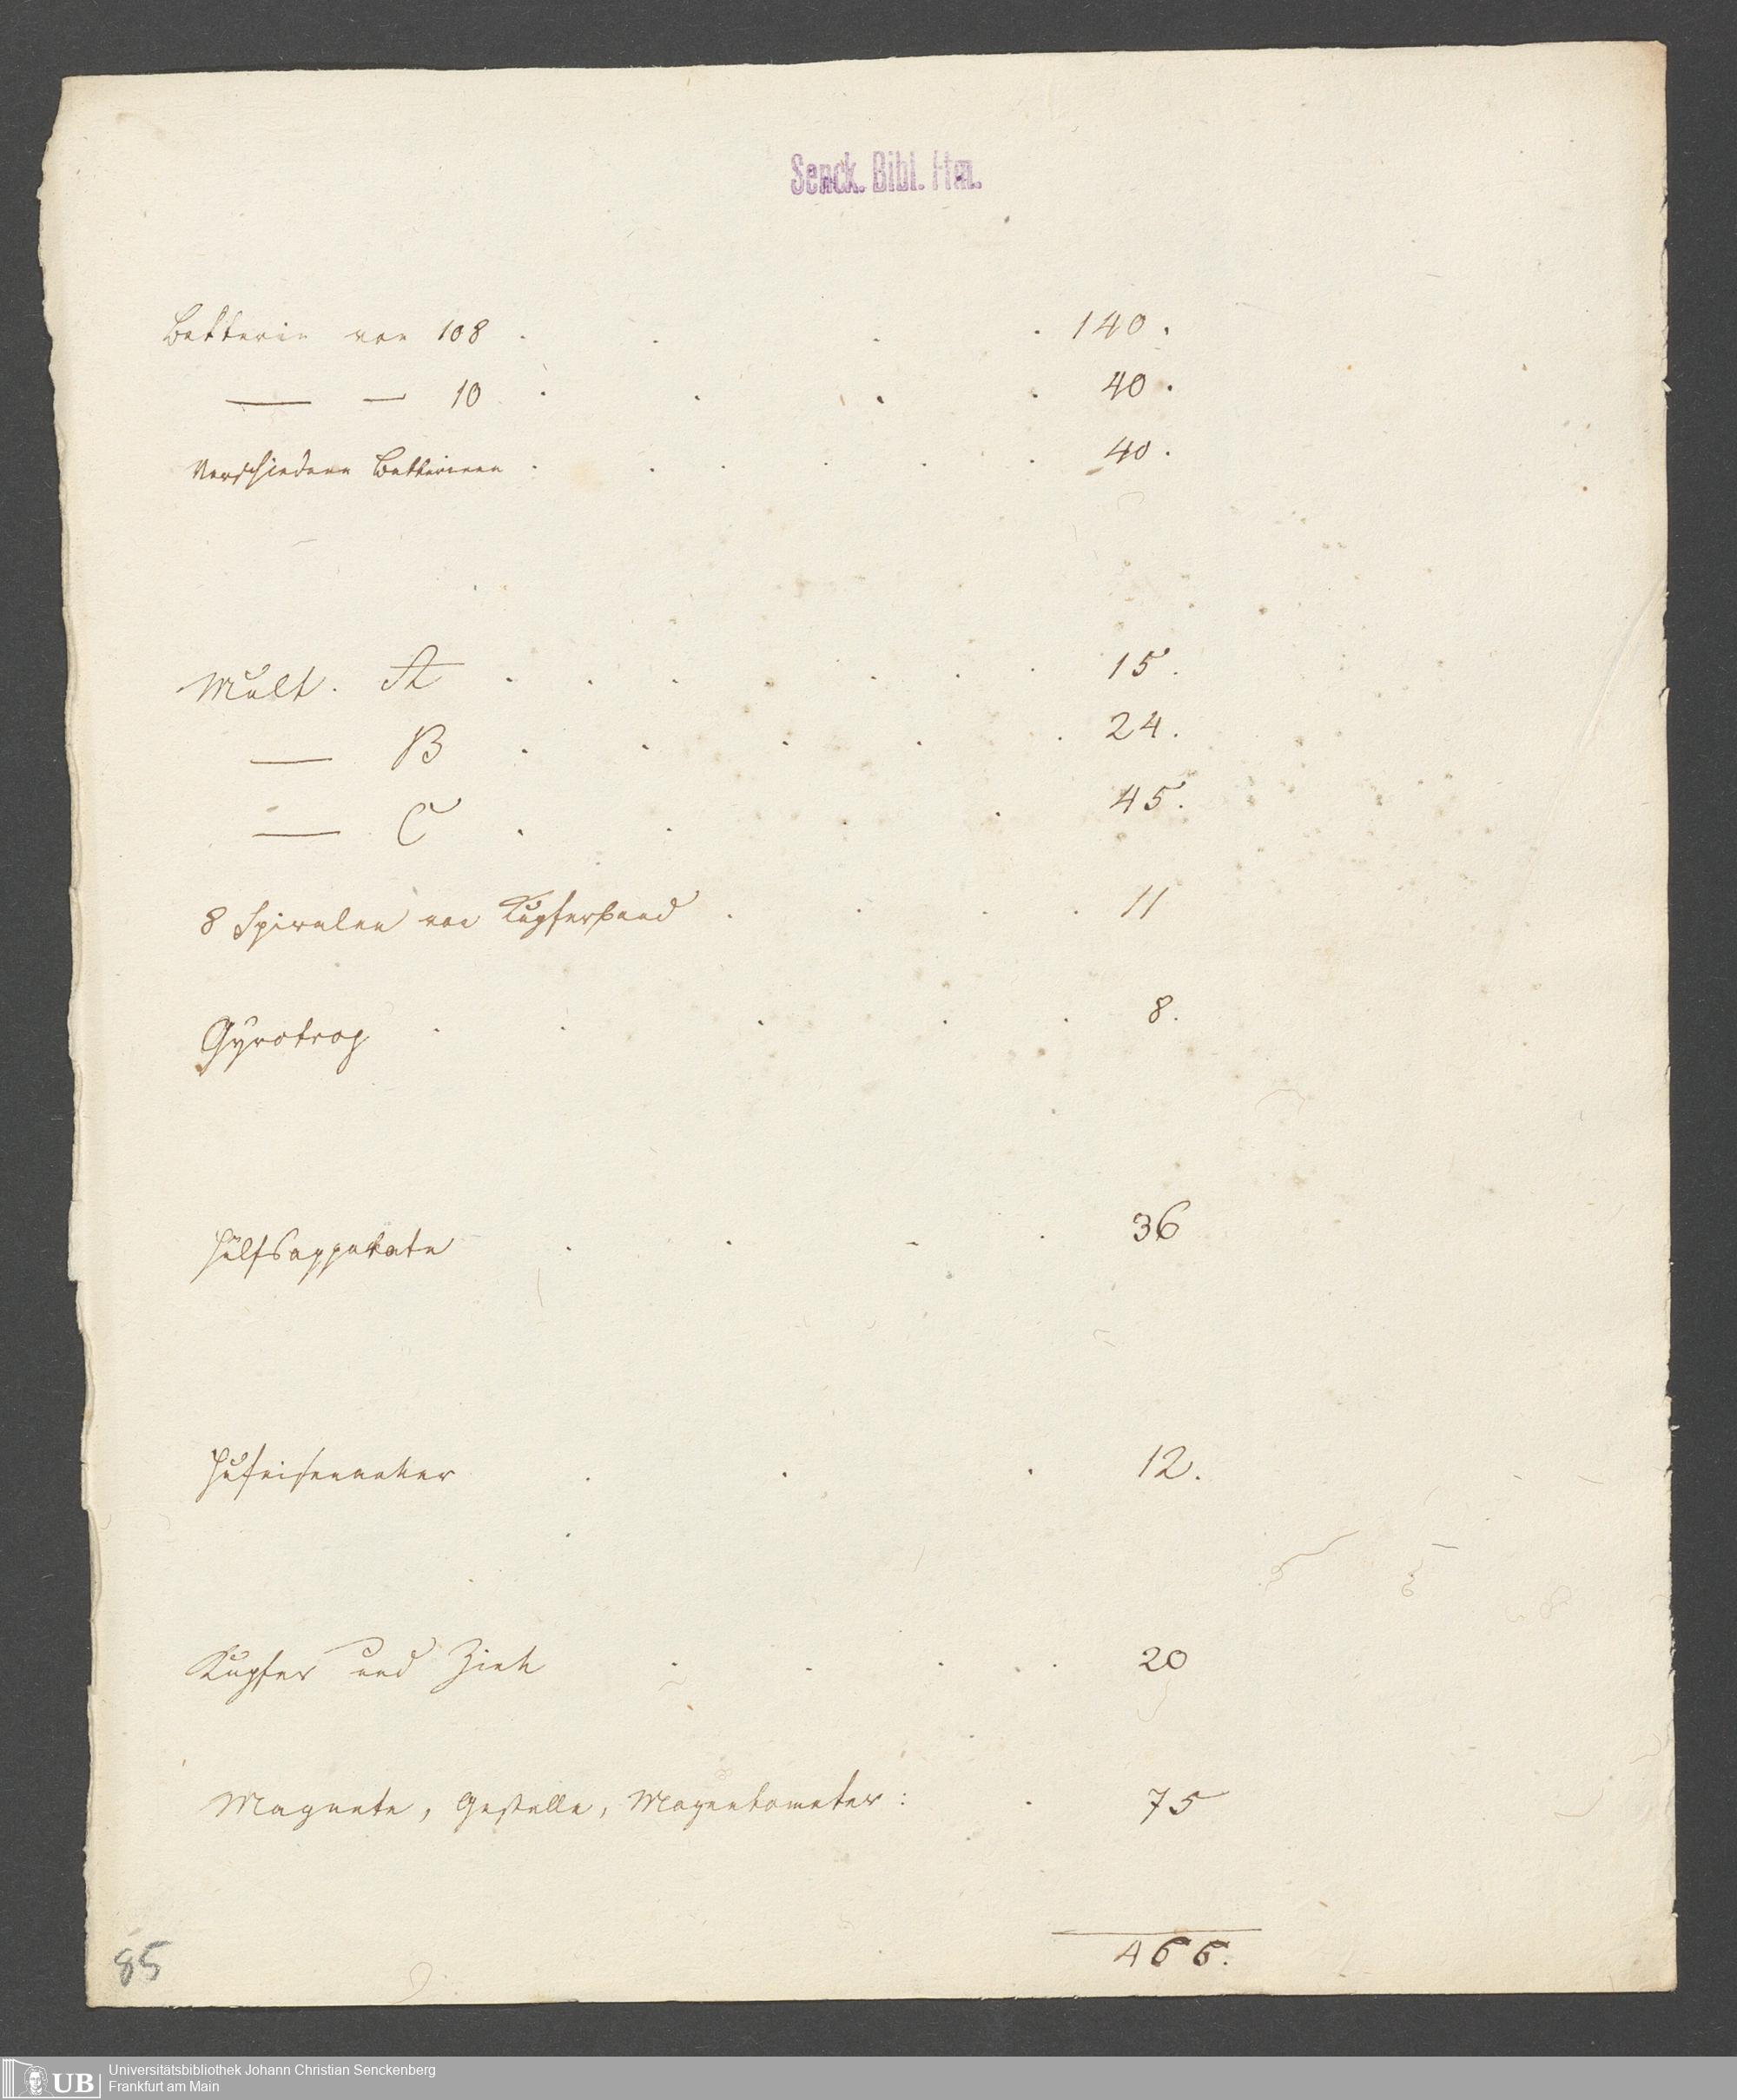 Senck. Bibl. Ffm.
Batterie von 108 . . . . 140 .
— — 10 . . . . 40 .
Verschiedene Batterieen . . . . . . 40 .
Mult. A . . . . . . . 15 .
— B . . . . . 24 .
— C . . . . 45 .
8 Spiralen von Kupferband . . . . 11
Gyrotrop . . . . . 8 .
Hülfsapparate . . . . 36
Hufeisenanker . . . 12 .
Kupfer und Zink . . . . . 20
Magnete, Gestelle, Magnetometer : . 75
466.
85
UB Universitätsbibliothek Johann Christian Senckenberg
Frankfurt am Main